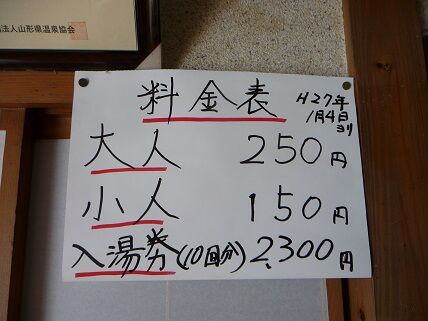 法人山形県温泉協会
料金表
H27年
1月4日
ヨリ
大人 250円
小人 150円
入湯券(10回分) 2,300円